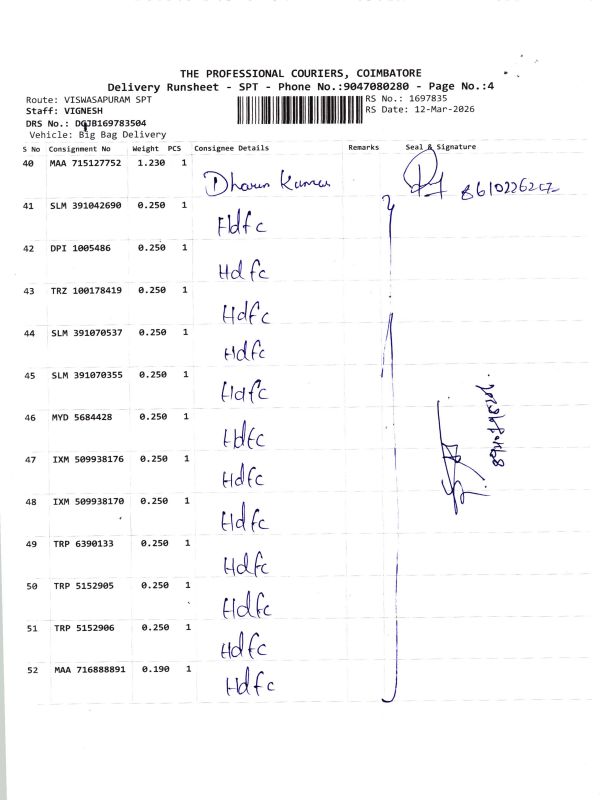 THE PROFESSIONAL COURIERS, COIMBATORE
Delivery Runsheet - SPT - Phone No.:9047080280 - Page No.:4
Route: VISWASAPURAM SPT
RS No.: 1697835
Staff: VIGNESH
RS Date: 12-Mar-2026
DRS No.: DQJB169783504
Vehicle: Big Bag Delivery
S No Consignment No Weight PCS Consignee Details Remarks Seal & Signature
40 MAA 715127752 1.230 1 Dharun Kumar
41 SLM 391042690 0.250 1 Hdfc
42 DPI 1005486 0.250 1 Hdfc
43 TRZ 100178419 0.250 1 Hdfc
44 SLM 391070537 0.250 1 Hdfc
45 SLM 391070355 0.250 1 Hdfc
46 MYD 5684428 0.250 1 Hdfc
47 IXM 509938176 0.250 1 Hdfc
48 IXM 509938170 0.250 1 Hdfc
49 TRP 6390133 0.250 1 Hdfc
50 TRP 5152905 0.250 1 Hdfc
51 TRP 5152906 0.250 1 Hdfc
52 MAA 716888891 0.190 1 Hdfc